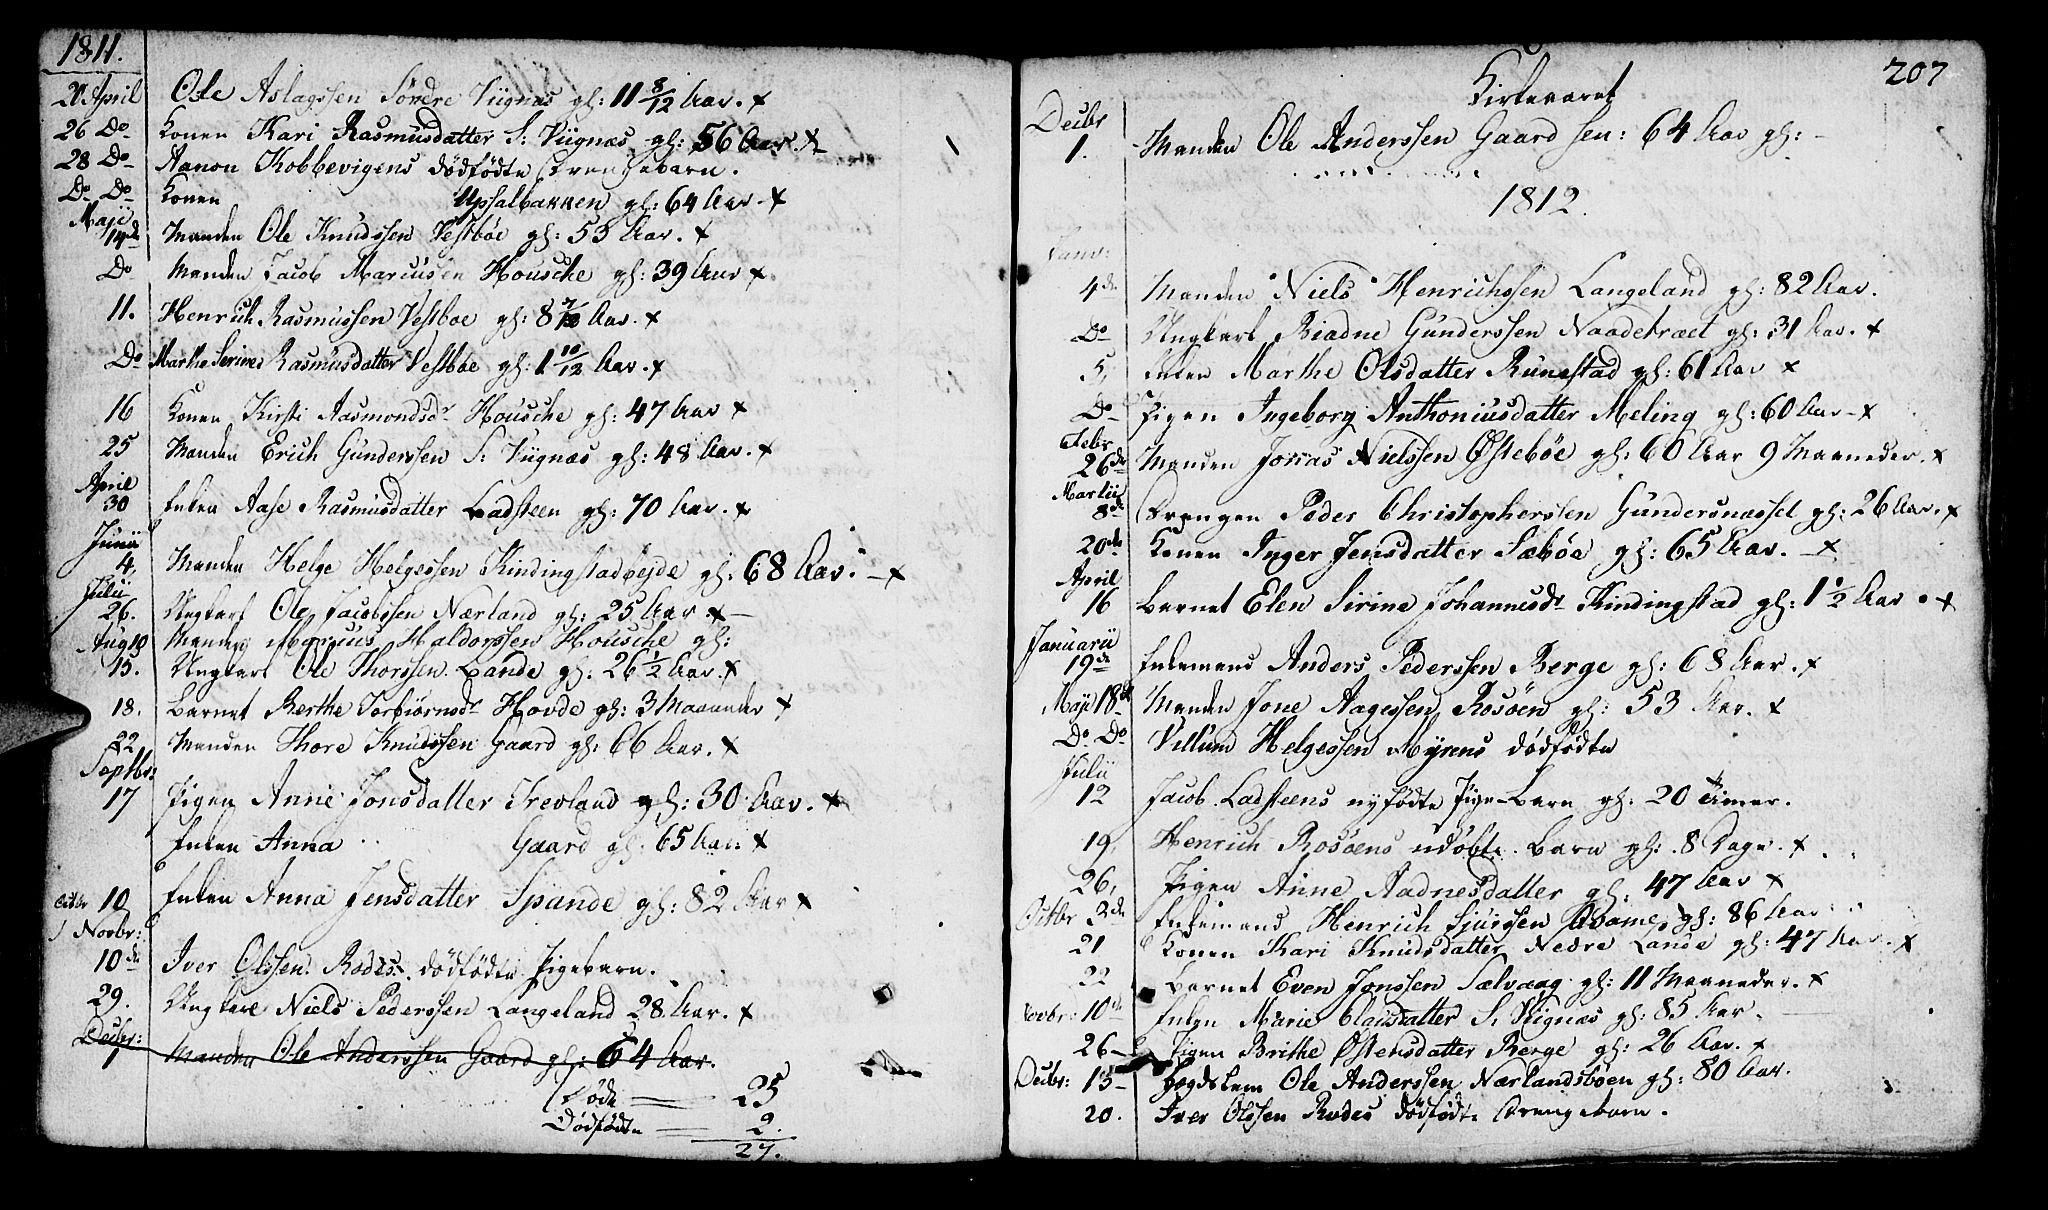 1811.
20 April Ole Aslagssen Söndre Viignæs gl: 11 8/12 Aar. x
26 Do Konen Kari Rasmusdatter S: Viignæs gl: 56 Aar. x
28 Do Aanon Kobbevigens dödfödte Drengebarn.
Do Do Konen Upsalbakken gl: 64 Aar. x
Maji
14de Manden Ole Knudssen Vestböe gl: 53 Aar. x
Do Manden Jacob Marcusen Housche gl: 39 Aar x
11. Henrich Rasmussen Vestboe gl: 8 Aar. x
Do Marthe Serine Rasmusdatter Vestböe gl: 1 10/12 Aar. x
16 Konen Kirsti Aasmondsdr Housche gl: 47 Aar x
25 Manden Erich Gunderssen S: Viignæs gl: 48 Aar. x
April
30 Enken Aase Rasmusdatter Ladsteen gl: 70 Aar. x
Junii
4. Manden Helge Helgessen Kindingstadhejde gl: 68 Aar. x
Julii
26. Ungkarl Ole Jacobssen Nærland gl: 25 Aar x
Aug 10 Manden Marcus Haldorssen Housche gl:
15. Ungkarl Ole Thorssen Lande gl: 26 1/2 Aar. x
18. Barnet Berthe Torbiörnsdr Hovde gl: 3 Maaneder x
22 Manden Thore Knudssen Gaard gl: 66 Aar. x
Septbr:
17 Pigen Anne Jonsdatter Trevland gl: 30 Aar. x
Enken Anna Gaard gl: 65 Aar. x
Octbr 10 Enken Anna Jensdatter Spande gl: 82 Aar x
Novbr:
10de Iver Olssen Rodes dödfödte Pigebarn.
29. Ungkarl Niels Pederssen Langeland 28 Aar. x
Decbr:
1 Manden Ole Anderssen Gaard gl: 64 Aar.
Döde 25
Dödfödte 2.
27.
207
Kirkevaret
Decbr
1. Manden Ole Anderssen Gaard sen: 64 Aar gl:
1812.
Janr:
4de Manden Niels Henrichssen Langeland gl: 82 Aar.
Do Ungkarl Biadne Gunderssen Naadetræet gl: 31 Aar. x
5, Enken Marthe Olsdatter Runestad gl: 61 Aar x
Do Pigen Ingeborg Anthoniusdatter Meling gl: 60 Aar x
Febr
26de Manden Jonas Nielssen Östeböe gl: 60 Aar 9 Maaneder. x
Martii
8de Drengen Peder Christopherssen Gundersnæsset gl: 26 Aar. x
20de Konen Inger Jensdatter Sæböe gl: 65 Aar. x
April
16 Barnet Elen Sirine Johannesdr Kindingstad gl: 1 1/2 Aar. x
Januarii
19de Enkemand Anders Pederssen Berge gl: 68 Aar. x
Maji 18de Manden Jone Aagessen Rosöen gl: 53 Aar. x
Do Do Villum Helgessen Myrens dödfödte
Julii
12 Jacob Ladsteens nyfödte Pige-Barn gl: 20 Timer.
19, Henrich Rosöens udöbte Barn gl: 8 Dage. x
26, Pigen Anne Aadnesdatter gl: 47 Aar x
Octbr 3de Enkemand Henrich Sjurssen gl: 86 Aar
21 Konen Kari Knudsdatter Nedre Lande gl: 47 Aar. x
22 Barnet Even Jonssen Sælvaag gl: 11 Maaneder. x
Novbr: 10de Enken Marie Clausdatter S: Viignæs gl: 85 Aar.
26 Pigen Brithe Östensdatter Berge gl: 26 Aar. x
Decbr: 15 Lægdslem Ole Anderssen Nærlandsböen gl: 80 Aar.
20. Iver Olssen Rodes dödfödte Drengebarn.